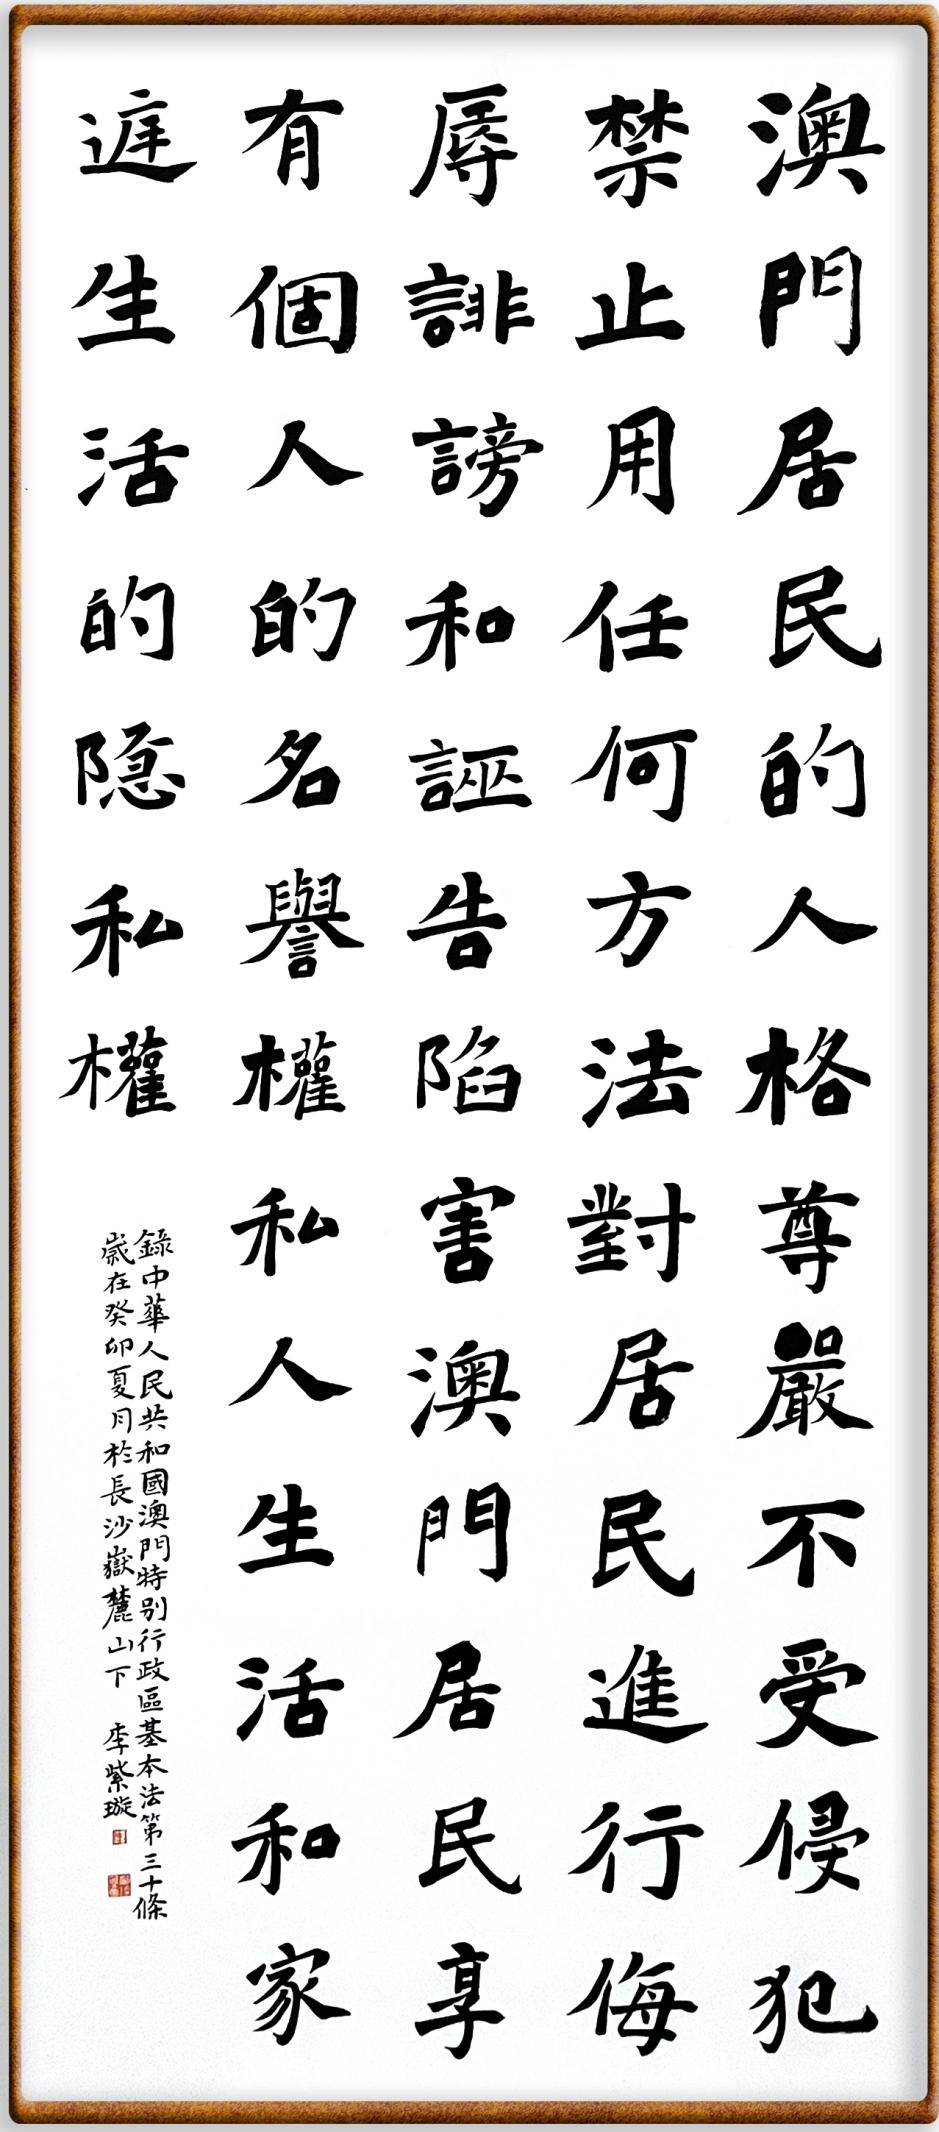 澳門居民的人格尊嚴不受侵犯
禁止用任何方法對居民進行侮
辱誹謗和誣告陷害澳門居民享
有個人的名譽權私人生活和家
庭生活的隐私權
錄中華人民共和國澳門特別行政區基本法第三十條
歲在癸卯夏月於長沙嶽麓山下 李紫璇